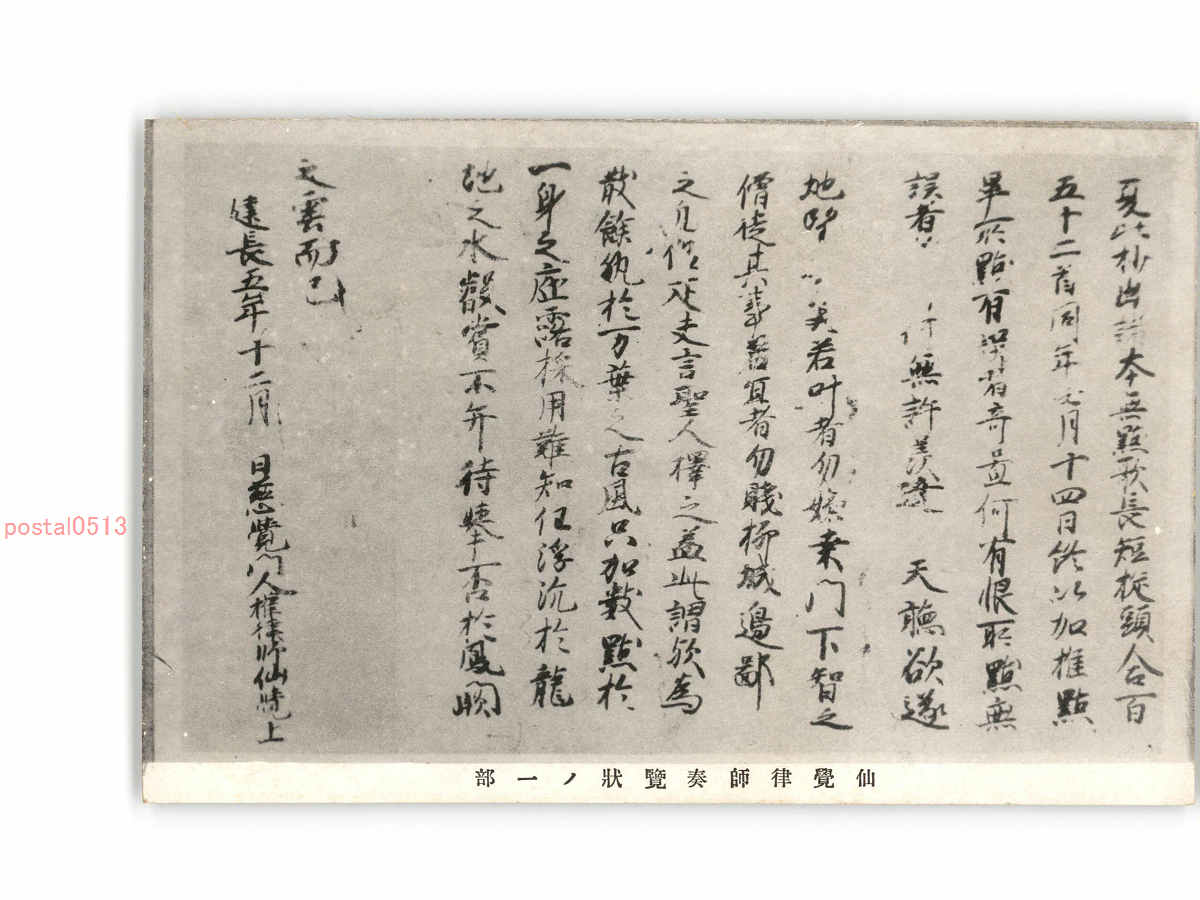 夏比抄出諸本無點歌長短旋頭合百
五十二首同年 月十四日終以加推點
畢所點有誤者 何有恨所點無
誤者 無許 天聽欲遂
地 若叶者勿嫌桑門下智之
僧徒其 者勿賤柳城邊鄙
之凡 夫言聖人擇之蓋此謂欤為
散餘執於万葉之古風只加數點於
一身之庭露採用難知任浮沉於龍
池之水 賞不弁待 否於鳳闕
之雲而已
建長五年十二月 日慈覺門人權律師仙覺上
仙覺律師奏覽狀ノ一部
postal0513